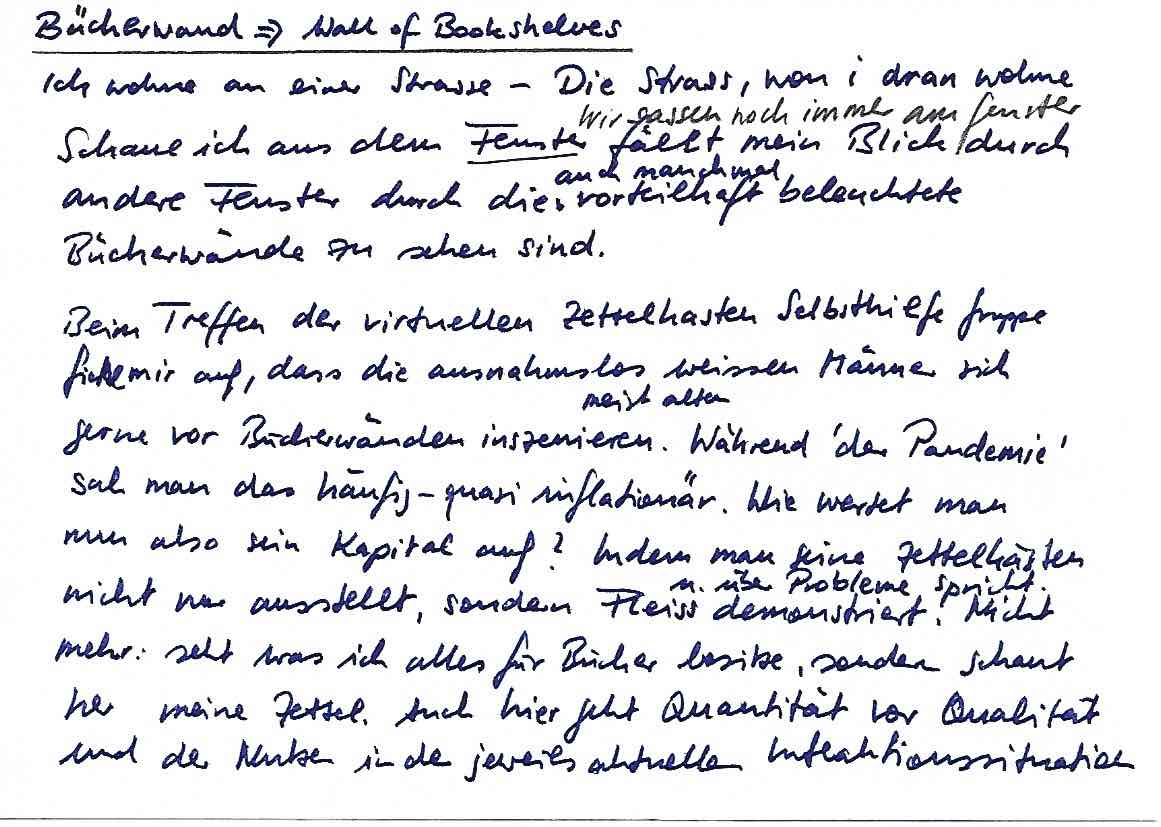 Bücherwand => Wall of Bookshelves
Ich wohne an einer Strasse – Die Strass, won i dran wohne
Wir gassen noch immer am Fenster
Schaue ich aus dem Fenster fällt mein Blick durch
auch manchmal
andere Fenster durch die vorteilhaft beleuchtete
Bücherwände zu sehen sind.
Beim Treffen der virtuellen Zettelkasten Selbsthilfe gruppe
mir auf, dass die ausnahmslos weissen Männer sich
meist alten
gerne vor Bücherwänden inszenieren. Während 'der Pandemie'
sah man das häufig – quasi inflationär. Wie wertet man
nun also sein Kapital auf? Indem man seine Zettelkästen
u. über Probleme spricht.
nicht nur ausstellt, sondern Fleiss demonstriert! Nicht
mehr: seht was ich alles für Bücher besitze, sondern schaut
her meine Zettel. Auch hier geht Quantität vor Qualität
und der Nutzen in der jeweils aktuellen Interaktionssituation